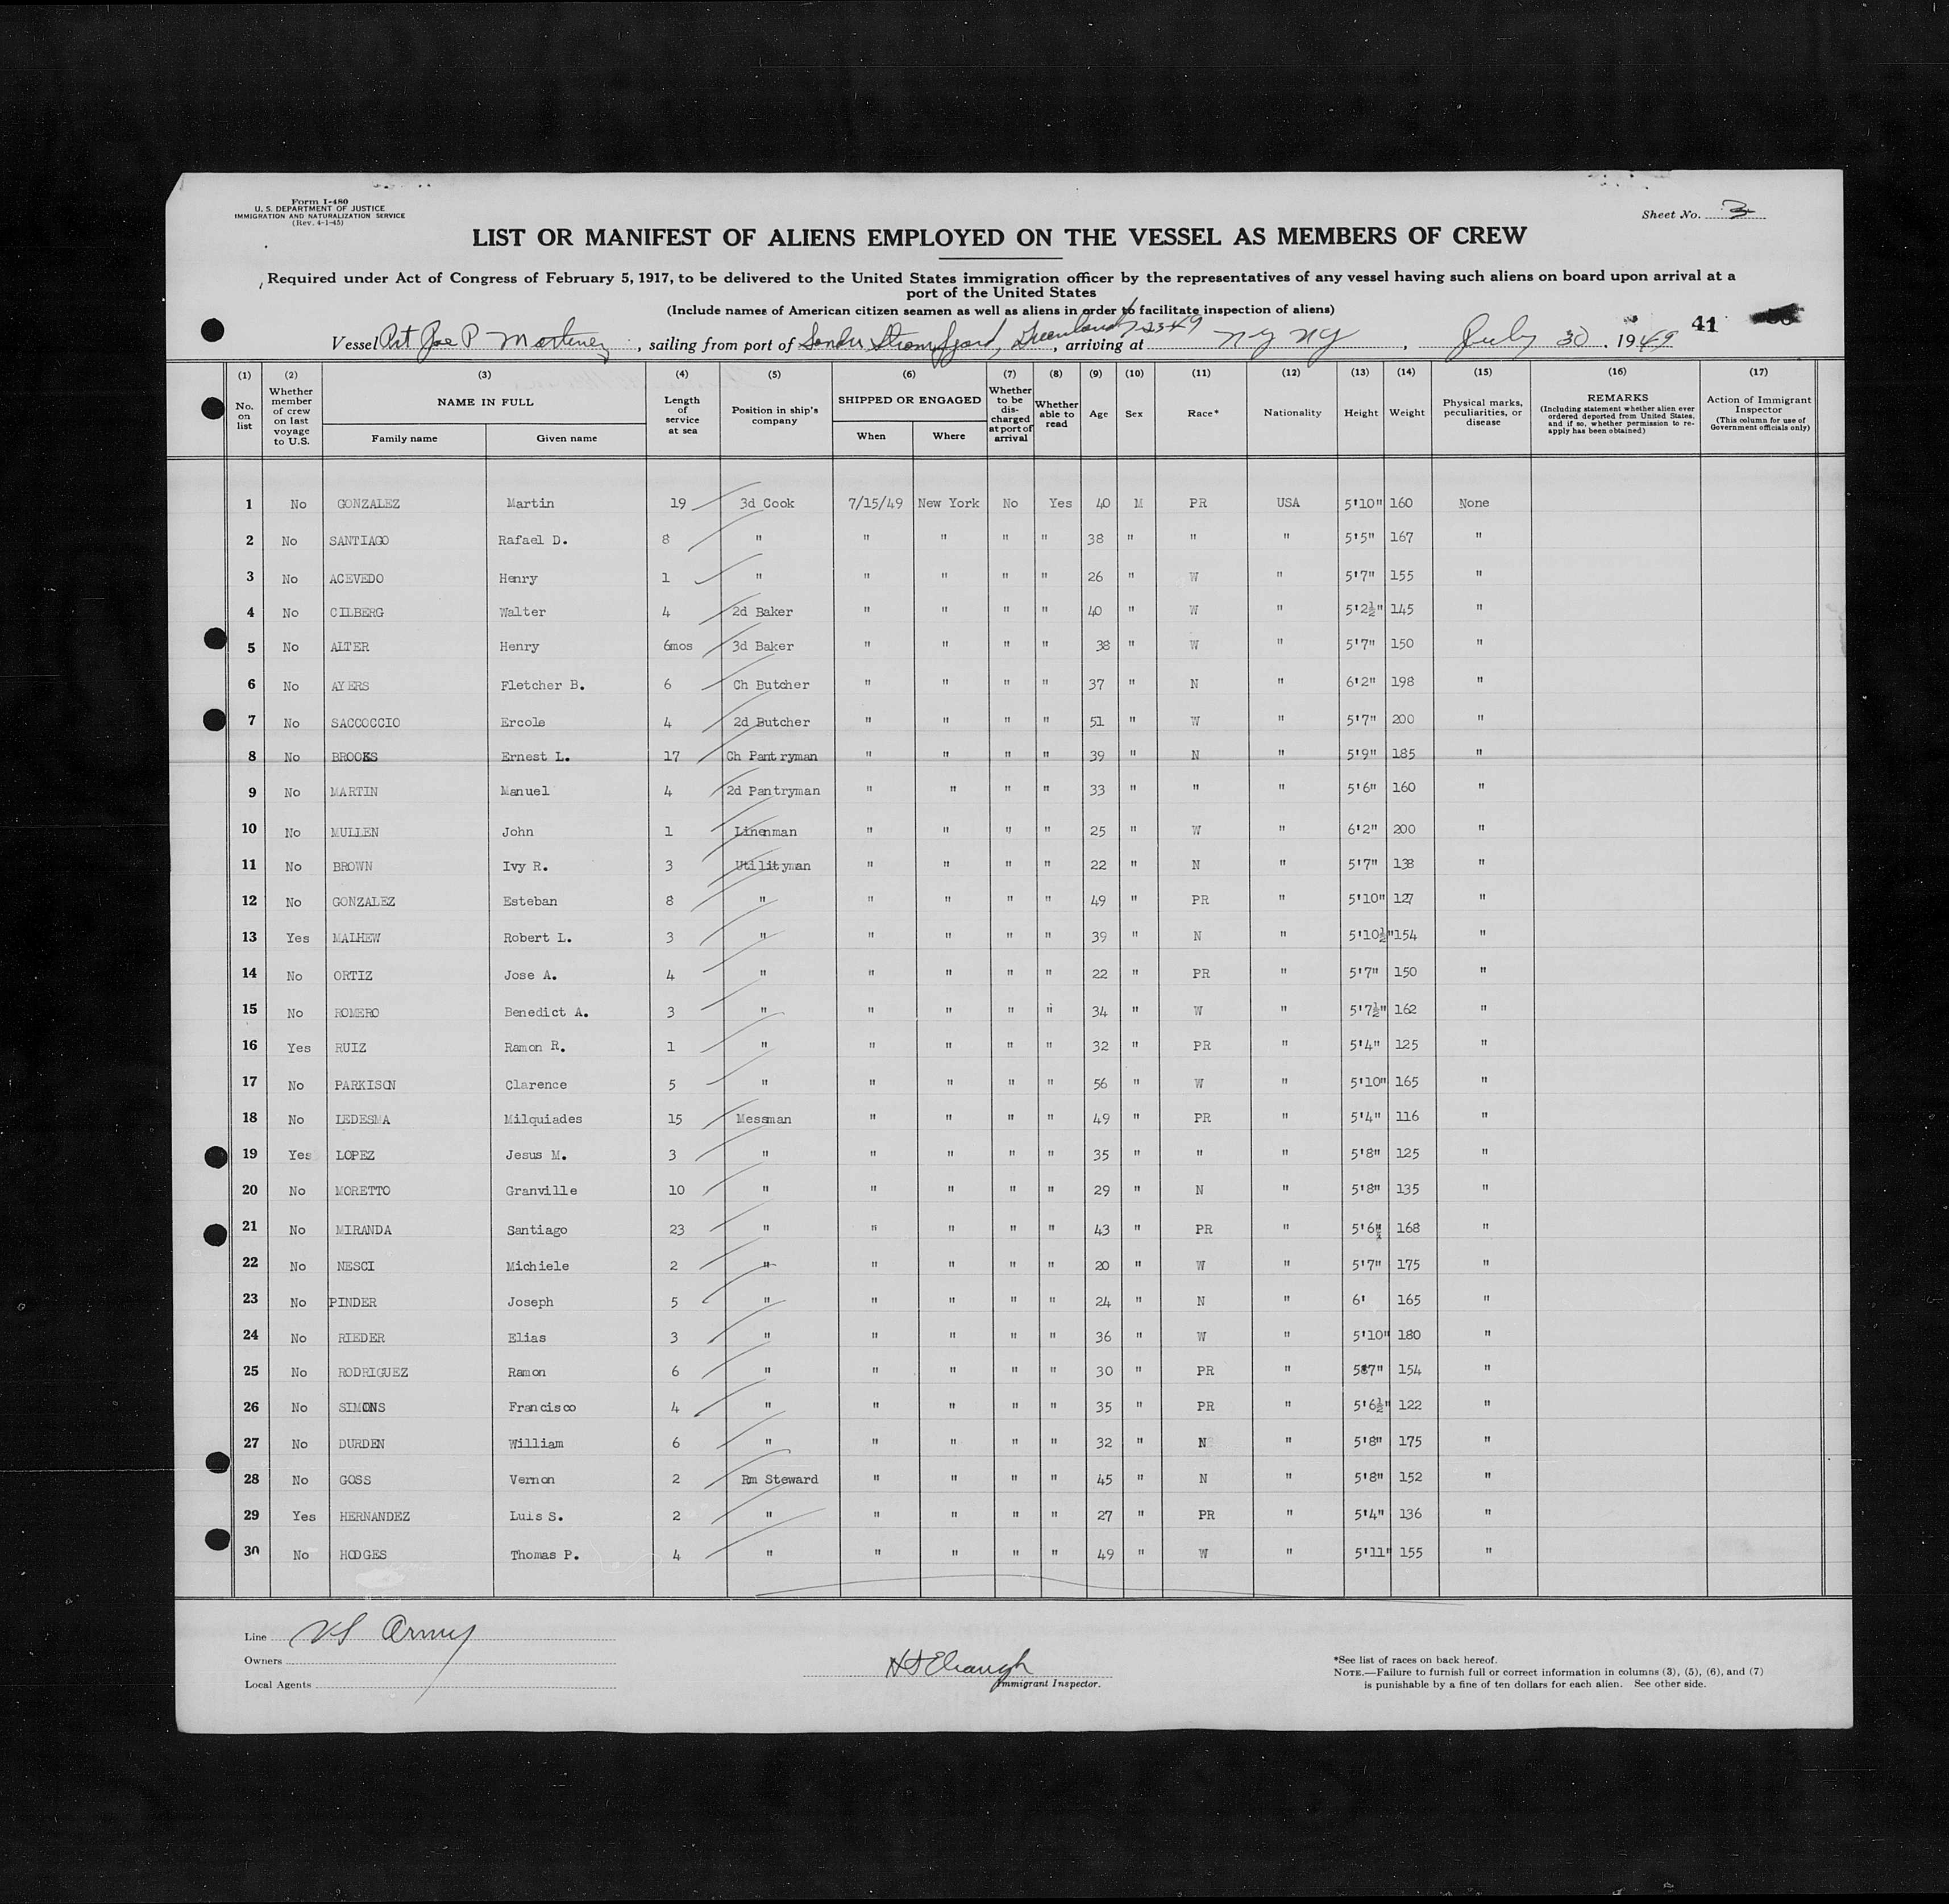 Form I-480
U. S. DEPARTMENT OF JUSTICE
IMMIGRATION AND NATURALIZATION SERVICE
(Rev. 4-1-45)
Sheet No. 3
LIST OR MANIFEST OF ALIENS EMPLOYED ON THE VESSEL AS MEMBERS OF CREW
Required under Act of Congress of February 5, 1917, to be delivered to the United States immigration officer by the representatives of any vessel having such aliens on board upon arrival at a
port of the United States
(Include names of American citizen seamen as well as aliens in order to facilitate inspection of aliens)
41
Vessel Pvt Joe P Martinez, sailing from port of Sonder Stromfjord, Greenland, arriving at NY NY, July 30, 1949
(1) (2) (3) (4) (5) (6) (7) (8) (9) (10) (11) (12) (13) (14) (15) (16) (17)
No. on list
Whether member of crew on last voyage to U.S.
NAME IN FULL
Family name Given name
Length of service at sea
Position in ship's company
SHIPPED OR ENGAGED
When Where
Whether to be discharged at port of arrival
Whether able to read
Age
Sex
Race*
Nationality
Height
Weight
Physical marks, peculiarities, or disease
REMARKS
(Including statement whether alien ever ordered deported from United States, and if so, whether permission to re-apply has been obtained)
Action of Immigrant Inspector
(This column for use of Government officials only)
1 No GONZALEZ Martin 19 3d Cook 7/15/49 New York No Yes 40 M PR USA 5'10" 160 None
2 No SANTIAGO Rafael D. 8 " " " " " 38 " " " 5'5" 167 "
3 No ACEVEDO Henry 1 " " " " " 26 " W " 5'7" 155 "
4 No CILBERG Walter 4 2d Baker " " " " 40 " W " 5'2½" 145 "
5 No ALTER Henry 6mos 3d Baker " " " " 38 " W " 5'7" 150 "
6 No AYERS Fletcher B. 6 Ch Butcher " " " " 37 " N " 6'2" 198 "
7 No SACCOCCIO Ercole 4 2d Butcher " " " " 51 " W " 5'7" 200 "
8 No BROOKS Ernest L. 17 Ch Pantryman " " " " 39 " N " 5'9" 185 "
9 No MARTIN Manuel 4 2d Pantryman " " " " 33 " " " 5'6" 160 "
10 No MULLEN John 1 Linenman " " " " 25 " W " 6'2" 200 "
11 No BROWN Ivy R. 3 Utilityman " " " " 22 " N " 5'7" 138 "
12 No GONZALEZ Esteban 8 " " " " " 49 " PR " 5'10" 127 "
13 Yes MALHEW Robert L. 3 " " " " " 39 " N " 5'10½" 154 "
14 No ORTIZ Jose A. 4 " " " " " 22 " PR " 5'7" 150 "
15 No ROMERO Benedict A. 3 " " " " " 34 " W " 5'7½" 162 "
16 Yes RUIZ Ramon R. 1 " " " " " 32 " PR " 5'4" 125 "
17 No PARKISON Clarence 5 " " " " " 56 " W " 5'10" 165 "
18 No LEDESMA Milquiades 15 Messman " " " " 49 " PR " 5'4" 116 "
19 Yes LOPEZ Jesus M. 3 " " " " " 35 " " " 5'8" 125 "
20 No MORETTO Granville 10 " " " " " 29 " N " 5'8" 135 "
21 No MIRANDA Santiago 23 " " " " " 43 " PR " 5'6" 168 "
22 No NESCI Michiele 2 " " " " " 20 " W " 5'7" 175 "
23 No PINDER Joseph 5 " " " " " 24 " N " 6' 165 "
24 No RIEDER Elias 3 " " " " " 36 " W " 5'10" 180 "
25 No RODRIGUEZ Ramon 6 " " " " " 30 " PR " 5'7" 154 "
26 No SIMONS Francisco 4 " " " " " 35 " PR " 5'6½" 122 "
27 No DURDEN William 6 " " " " " 32 " N " 5'8" 175 "
28 No GOSS Vernon 2 Rm Steward " " " " 45 " N " 5'8" 152 "
29 Yes HERNANDEZ Luis S. 2 " " " " " 27 " PR " 5'4" 136 "
30 No HODGES Thomas P. 4 " " " " " 49 " W " 5'11" 155 "
Line US Army
Owners
Local Agents
Immigrant Inspector.
*See list of races on back hereof.
NOTE.—Failure to furnish full or correct information in columns (3), (5), (6), and (7)
is punishable by a fine of ten dollars for each alien. See other side.